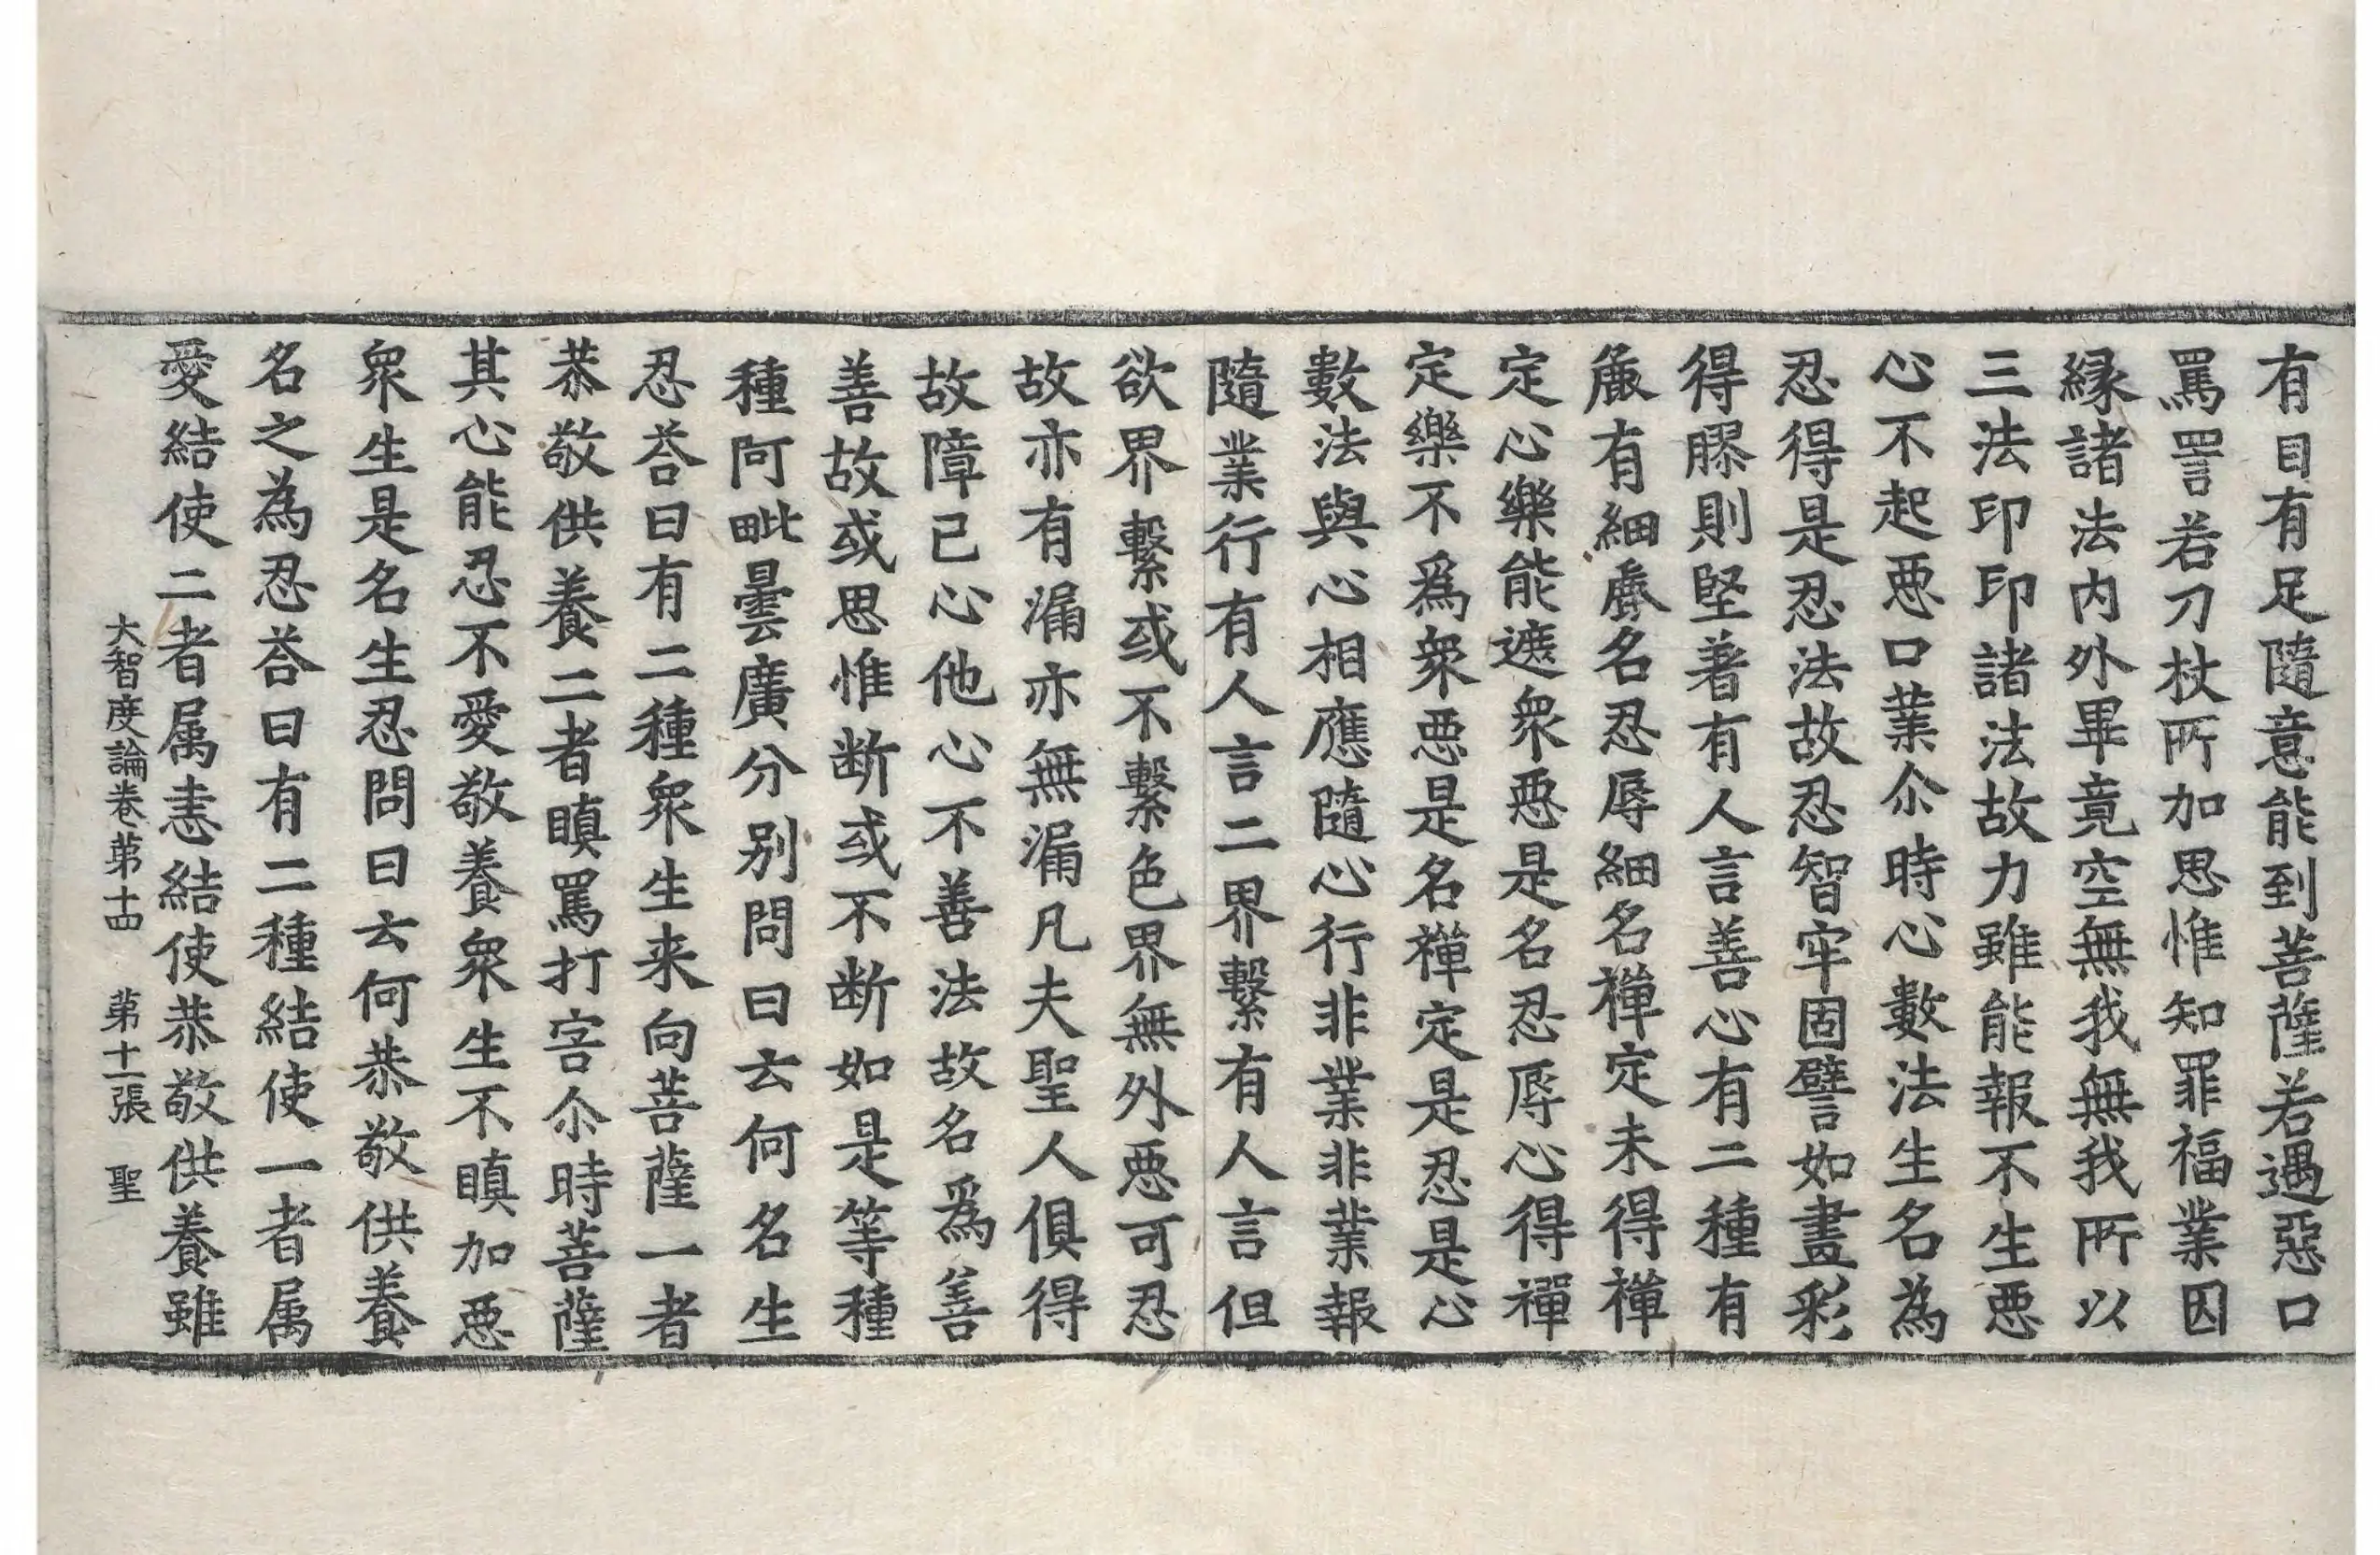 有目有足隨意能到菩薩若遇惡口
罵詈若刀杖所加思惟知罪福業因
縁諸法内外畢竟空無我無我所以
三法印印諸法故力雖能報不生悪
心不起悪口業尒時心數法生名為
忍得是忍法故忍智牢固譬如畫彩
得膠則堅著有人言善心有二種有
麁有細麁名忍辱細名禪定未得禪
定心樂能遮衆悪是名忍辱心得禪
定樂不爲衆悪是名禪定是忍是心
數法與心相應隨心行非業非業報
隨業行有人言二界繫有人言但
欲界繫或不繫色界無外悪可忍
故亦有漏亦無漏凡夫聖人俱得
故障己心他心不善法故名爲善
善故或思惟断或不断如是等種
種阿毗曇廣分別問曰云何名生
忍荅曰有二種衆生来向菩薩一者
恭敬供養二者瞋罵打害尒時菩薩
其心能忍不愛敬養衆生不瞋加悪
衆生是名生忍問曰云何恭敬供養
名之為忍荅曰有二種結使一者属
愛結使二者属恚結使恭敬供養雖
大智度論卷第十四 第十二張 聖